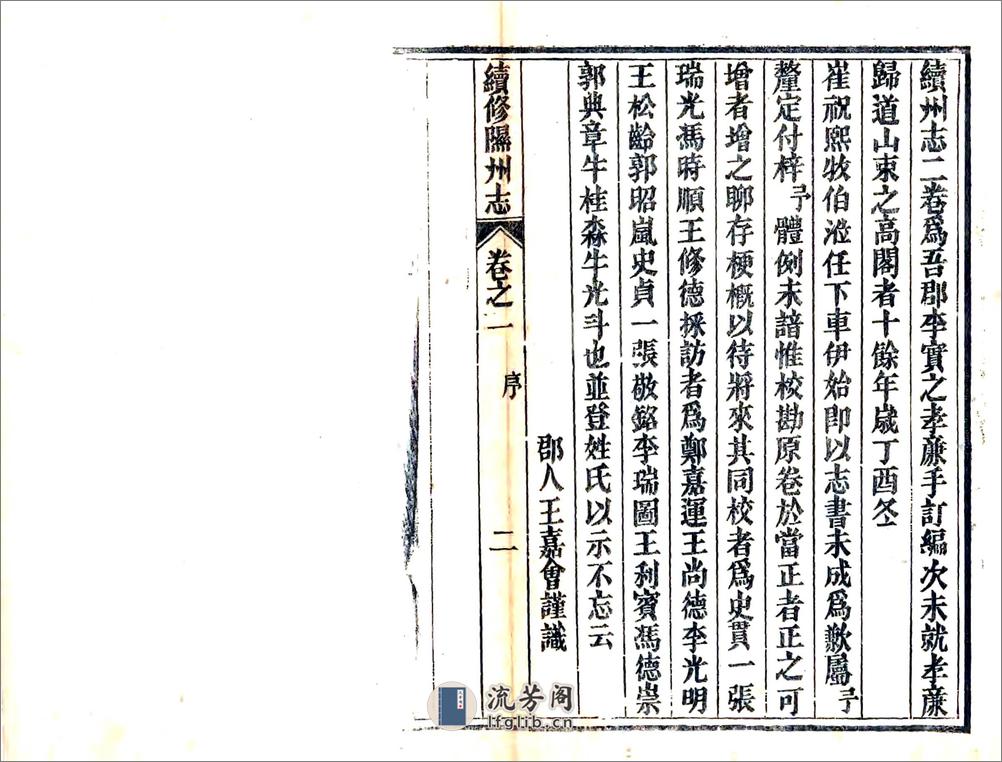 續州志二卷爲吾郡李實之孝亷手訂編次未就孝亷
歸道山束之高閣者十餘年歲丁酉冬
崔祝熙牧伯涖任下車伊始卽以志書未成爲歉屬予
釐定付梓予體例未諳惟校勘原卷於當正者正之可
增者增之聊存梗槪以待將來其同校者爲史貫一張
瑞光馮時順王修德採訪者爲鄭嘉運王尚德李光明
王松齡郭昭嵐史貞一張敬銘李瑞圖王利賓馮德崇
郭典章牛桂森牛光斗也並登姓氏以示不忘云
郡人王嘉會謹識
續修隰州志 卷之一 序 二
流芳阁
lfglib.cn